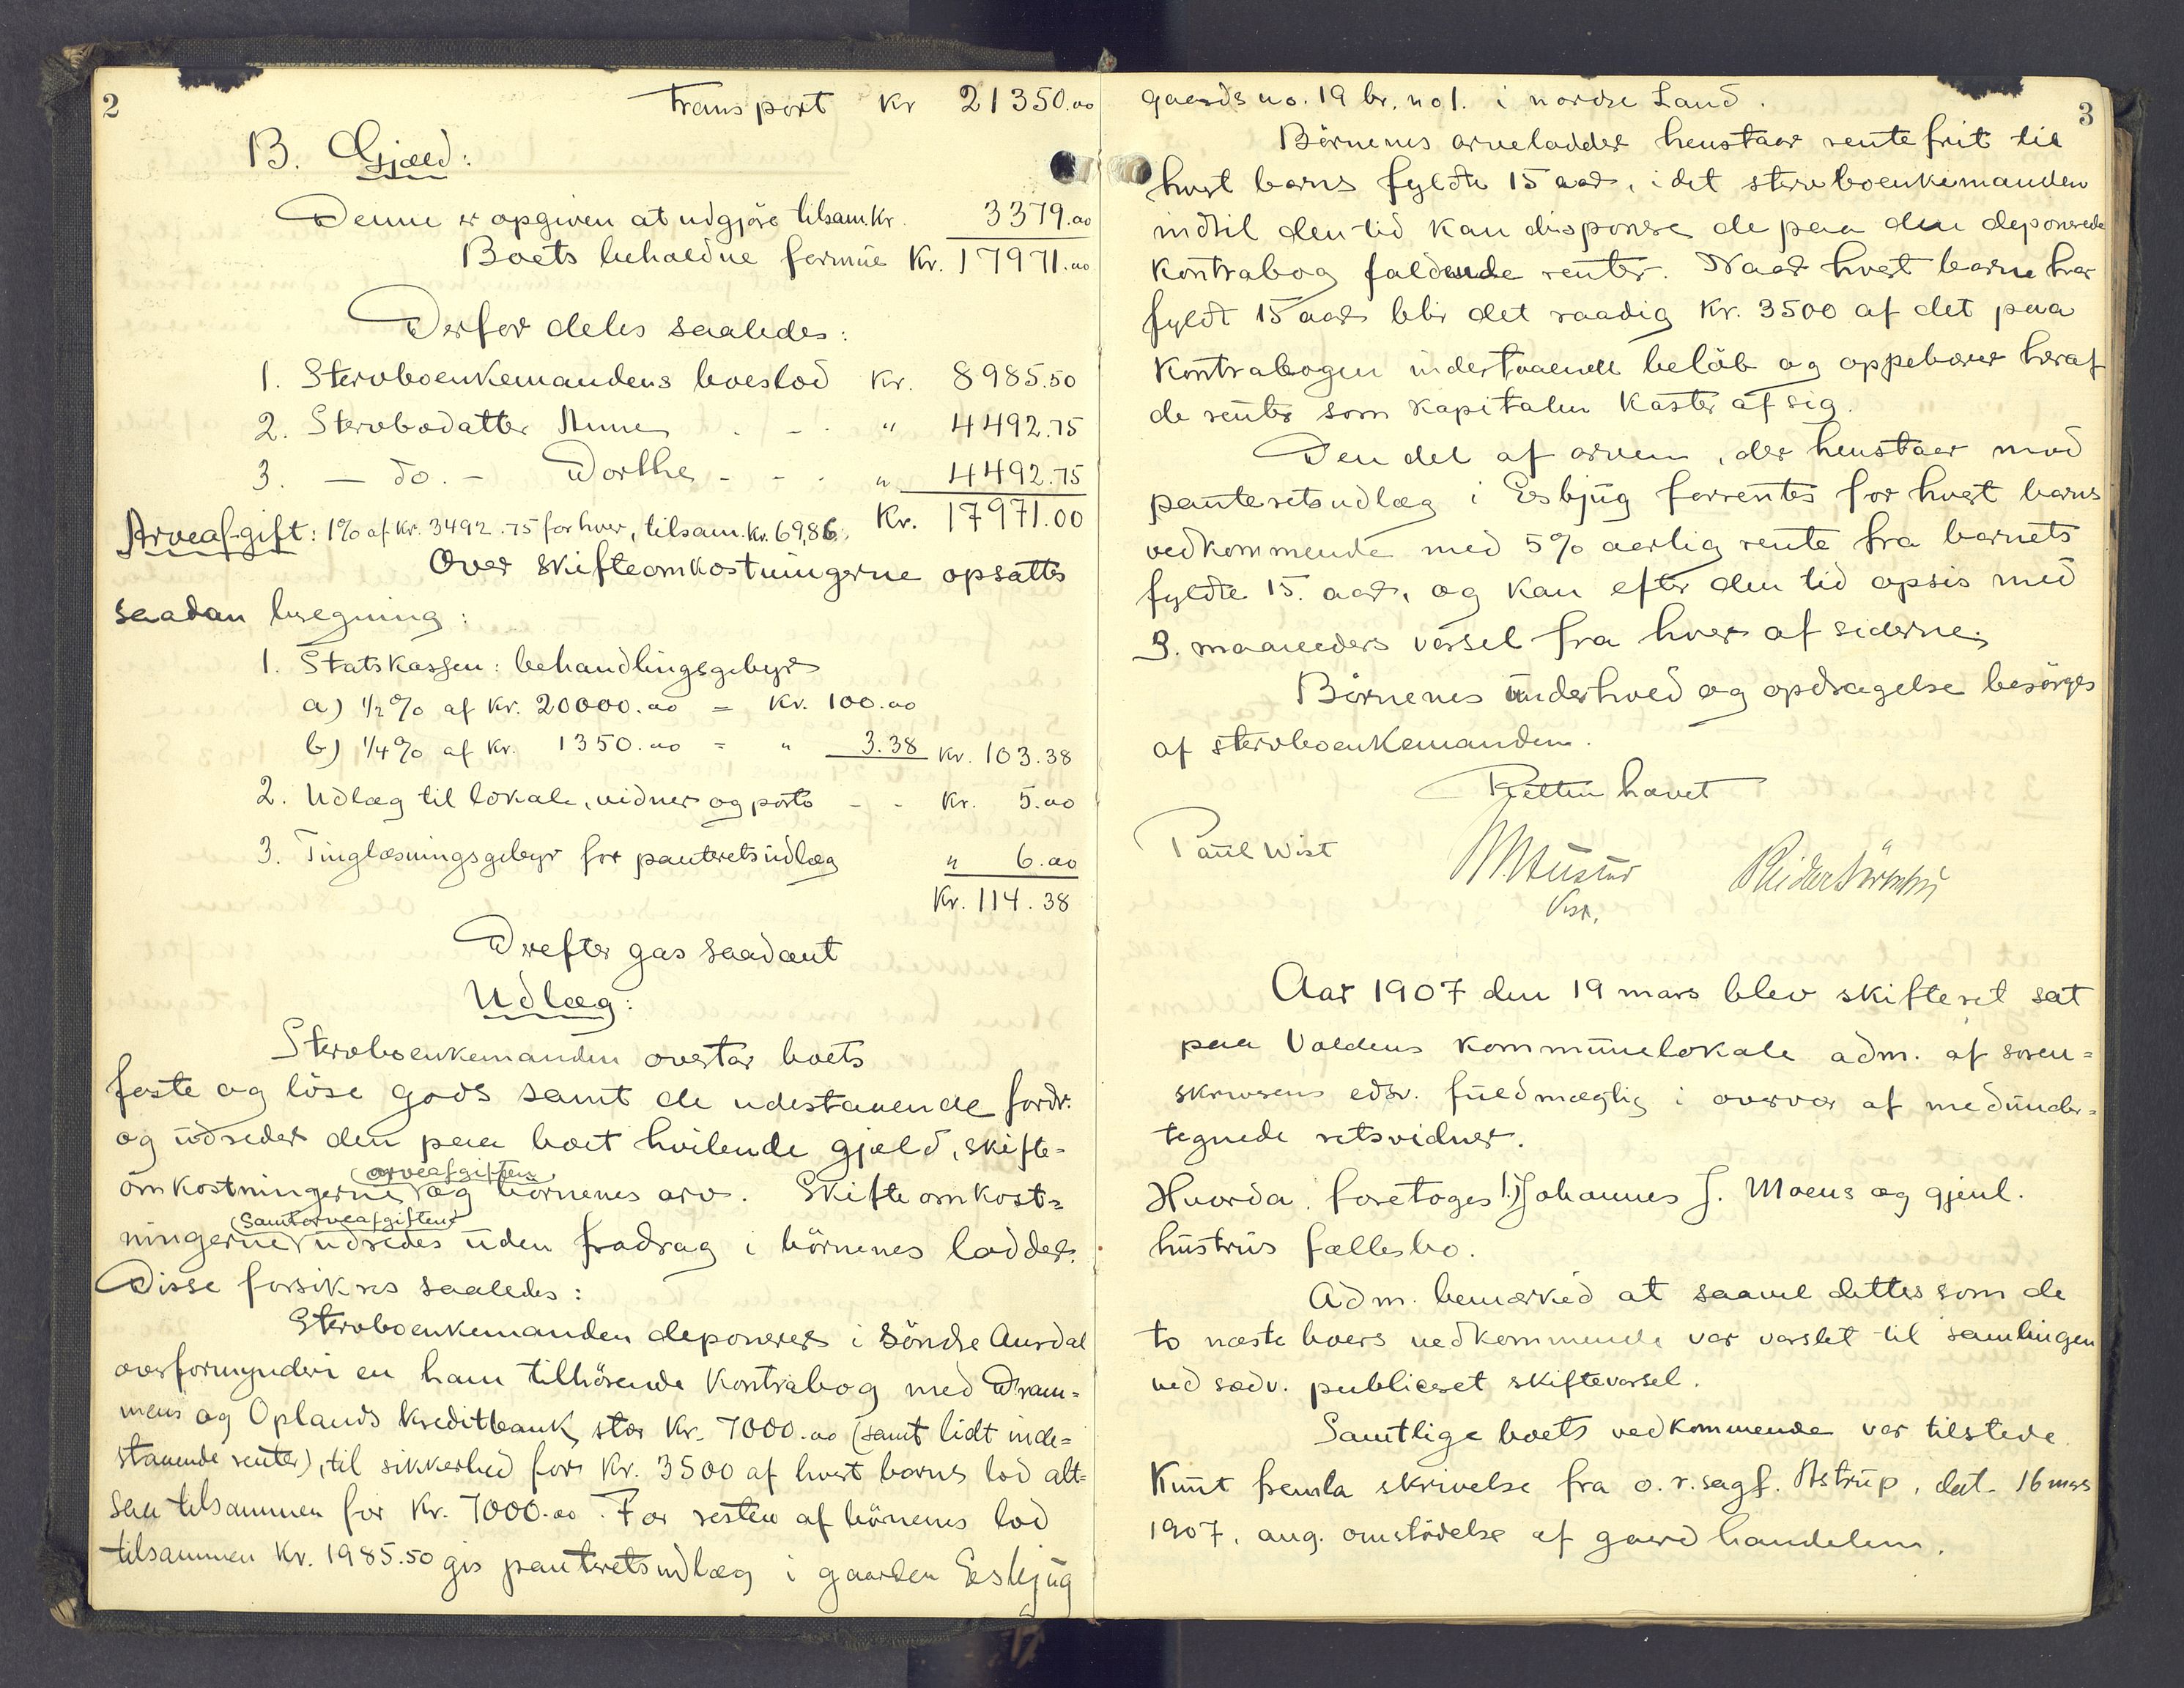 2
Transport Kr 21350.00
B. Gjæld:
Denne er opgiven at udgjöre tilsam. Kr. 3379.00
Boets beholdne formue Kr. 17971.00
Derfor deles saaledes:
1. Stervboenkemandens boeslod Kr. 8985.50
2. Stervbodatter Anne - - " 4492.75
3. - do. - Dorthe - - - " 4492.75
Kr. 17971.00
Arveafgift: 1% af Kr. 3492.75 for hver, tilsam. Kr. 69,86.
Over skifteomkostningerne opsattes
saadan beregning:
1. Statskassen: behandlingsgebyr
a) 1/2% af Kr. 20000.00 = Kr. 100.00
b) 1/4% af Kr. 1350.00 = " 3.38 Kr. 103.38
2. Udlæg til lokale, vidner og porto - - Kr. 5.00
3. Tinglæsningsgebyr for panteretsudlæg " 6.00
Kr. 114.38
Derefter gas saadant
Udlæg:
Stervboenkemanden overtar boets
faste og löse gods samt de udestaaende fordr.
og udreder den paa boet hvilende gjæld, skifte=
(arveafgiften)
omkostningerne og börnenes arv. Skifteomkost=
(samt arveafgiften)
ningerne udredes uden fradrag i börnenes lodder.
Disse forsikres saaledes:
Stervboenkemanden deponerer i Söndre Aurdal
overformynderi en ham tilhörende Kontrabog med Dram=
mens og Oplands Kreditbank, stor Kr. 7000.00 (samt lidt inde=
staaende renter), til sikkerhed for Kr. 3500 af hvert barns lod alt=
saa tilsammen for Kr. 7000.00. For resten af börnenes lod
tilsammen Kr. 1985.50 gis panteretsudlæg i gaarden Esbjug
3
gaards no. 19 br. no 1. i nordre Land.
Börnenes arvelodder henstaar rentefrit til
hvert barns fyldte 15 aar, idet stervboenkemanden
indtil den tid kan disponere de paa den deponerede
Kontrabog faldende renter. Naar hvert barn har
fyldt 15 aar blir det raadig Kr. 3500 af det paa
Kontrabogen indestaaende belöb og oppebærer heraf
de renter som kapitalen kaster af sig.
Den del af arven, der henstaar mod
panteretsudlæg i Esbjug forrentes for hvert barns
vedkommende med 5% aarlig rente fra barnets
fyldte 15. aar, og kan efter den tid opsis med
3. maaneders varsel fra hver af siderne.
Börnenes underhold og opdragelse besörges
af stervboenkemanden.
Retten hævet
Paul Wist
Aar 1907 den 19 mars blev skifteret sat
paa Valdens kommunelokale adm. af soren=
skriverens edsv. fuldmægtig i overvær af medunder=
tegnede retsvidner.
Hvorda foretoges 1.) Johannes J. Moens og gjenl.
hustrus fællesbo.
Adm. bemærked at saavel dettes som de
to næste boers vedkommende var varslet til samlingen
ved sædv. publiceret skiftevarsel.
Samtlige boets vedkommende var tilstede.
Knut fremla skrivelse fra o.r.sagf. Astrup, dat. 16 mars
1907, ang. omstödelse af gaardhandelen.